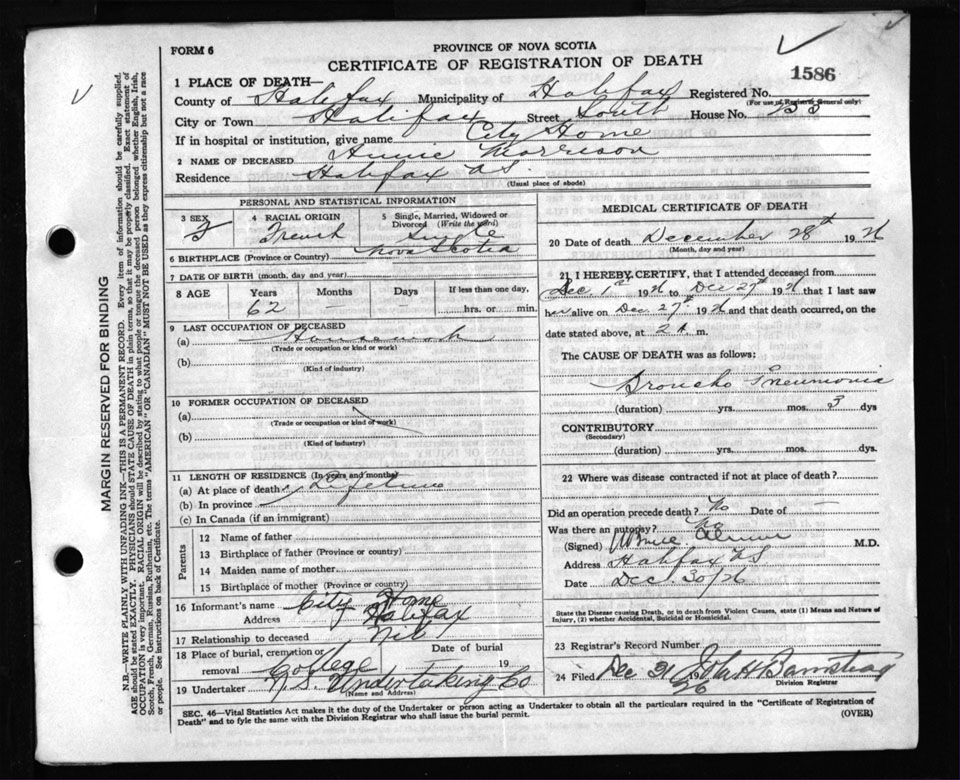 FORM 6
PROVINCE OF NOVA SCOTIA
CERTIFICATE OF REGISTRATION OF DEATH
1586
1 PLACE OF DEATH—
County of Halifax Municipality of Halifax Registered No.
(For use of Registrar General only)
City or Town Halifax Street South House No.
If in hospital or institution, give name City Home
2 NAME OF DECEASED Annie Morrison
Residence Halifax N.S.
(Usual place of abode)
PERSONAL AND STATISTICAL INFORMATION
3 SEX F
4 RACIAL ORIGIN French
5 Single, Married, Widowed or Divorced (Write the word) Single
6 BIRTHPLACE (Province or Country) Nova Scotia
7 DATE OF BIRTH (month, day and year)
8 AGE Years 62 Months — Days — If less than one day, hrs. or min.
9 LAST OCCUPATION OF DECEASED
(a)
(Trade or occupation or kind or work)
(b)
(Kind of industry)
10 FORMER OCCUPATION OF DECEASED
(a)
(Trade or occupation or kind or work)
(b)
(Kind of industry)
11 LENGTH OF RESIDENCE (In years and months)
(a) At place of death Lifetime
(b) In province
(c) In Canada (if an immigrant)
Parents
12 Name of father
13 Birthplace of father (Province or country)
14 Maiden name of mother
15 Birthplace of mother (Province or country)
16 Informant's name City Home
Address Halifax
17 Relationship to deceased Nil
18 Place of burial, cremation or removal College Date of burial 19
19 Undertaker N.S. Undertaking Co
(Name and Address)
MEDICAL CERTIFICATE OF DEATH
20 Date of death December 28th 1926
(Month, day and year)
21 I HEREBY CERTIFY, that I attended deceased from
Dec. 1st 1926 to Dec 27th 1926 that I last saw
her alive on Dec. 27th 1926 and that death occurred, on the
date stated above, at 2 A m.
The CAUSE OF DEATH was as follows:
Broncho Pneumonia
(duration) yrs. mos. 3 dys
CONTRIBUTORY
(Secondary)
(duration) yrs. mos. dys
22 Where was disease contracted if not at place of death?
Did an operation precede death? No Date of —
Was there an autopsy? No
(Signed) M.D.
Address Halifax N.S
Date Dec. 30/26
State the Disease causing Death, or in death from Violent Causes, state (1) Means and Nature of
Injury, (2) whether Accidental, Suicidal or Homicidal.
23 Registrar's Record Number
24 Filed Dec 31 1926 John H Barnstead
Division Registrar
SEC. 46—Vital Statistics Act makes it the duty of the Undertaker or person acting as Undertaker to obtain all the particulars required in the "Certificate of Registration of
Death" and to fyle the same with the Division Registrar who shall issue the burial permit.
(OVER)
MARGIN RESERVED FOR BINDING
N.B.—WRITE PLAINLY WITH UNFADING INK—THIS IS A PERMANENT RECORD. Every item of information should be carefully supplied.
AGE should be stated EXACTLY. PHYSICIANS should STATE CAUSE OF DEATH in plain terms, so that it may be properly classified. Exact statement of
OCCUPATION is very important. RACIAL ORIGIN will be described by stating to what people or tongue the deceased person belonged whether English, Irish,
Scotch, French, German, Russian, Ruthenian, etc. The terms "AMERICAN" OR "CANADIAN" MUST NOT BE USED as they express citizenship but not a race
or people. See instructions on back of Certificate.